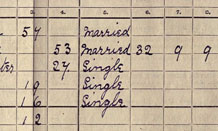 54 Married
53 Married 32 9 9
27 Single
19 Single
16 Single
12